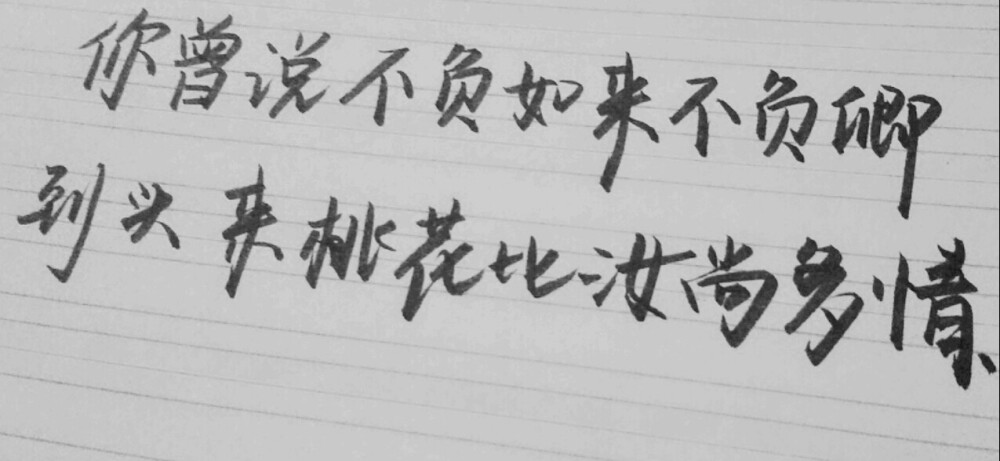 你曾说不负如来不负卿
到头来桃花比汝尚多情